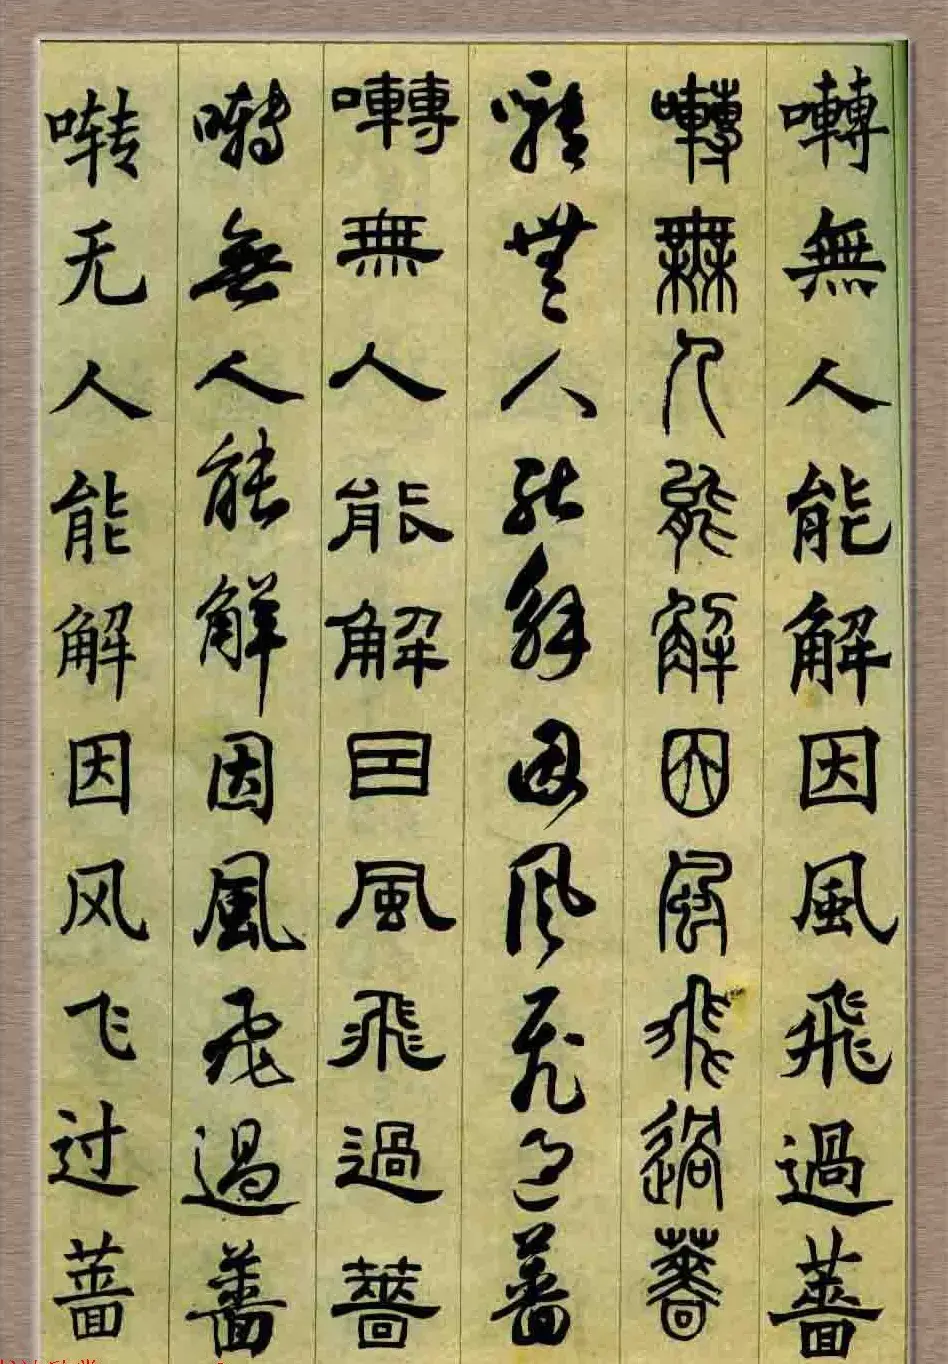 囀無人能解因風飛過薔
囀無人能解因風飛過薔
囀無人能解因風飛過薔
囀無人能解因風飛過薔
囀無人能解因風飛過薔
啭无人能解因风飞过蔷